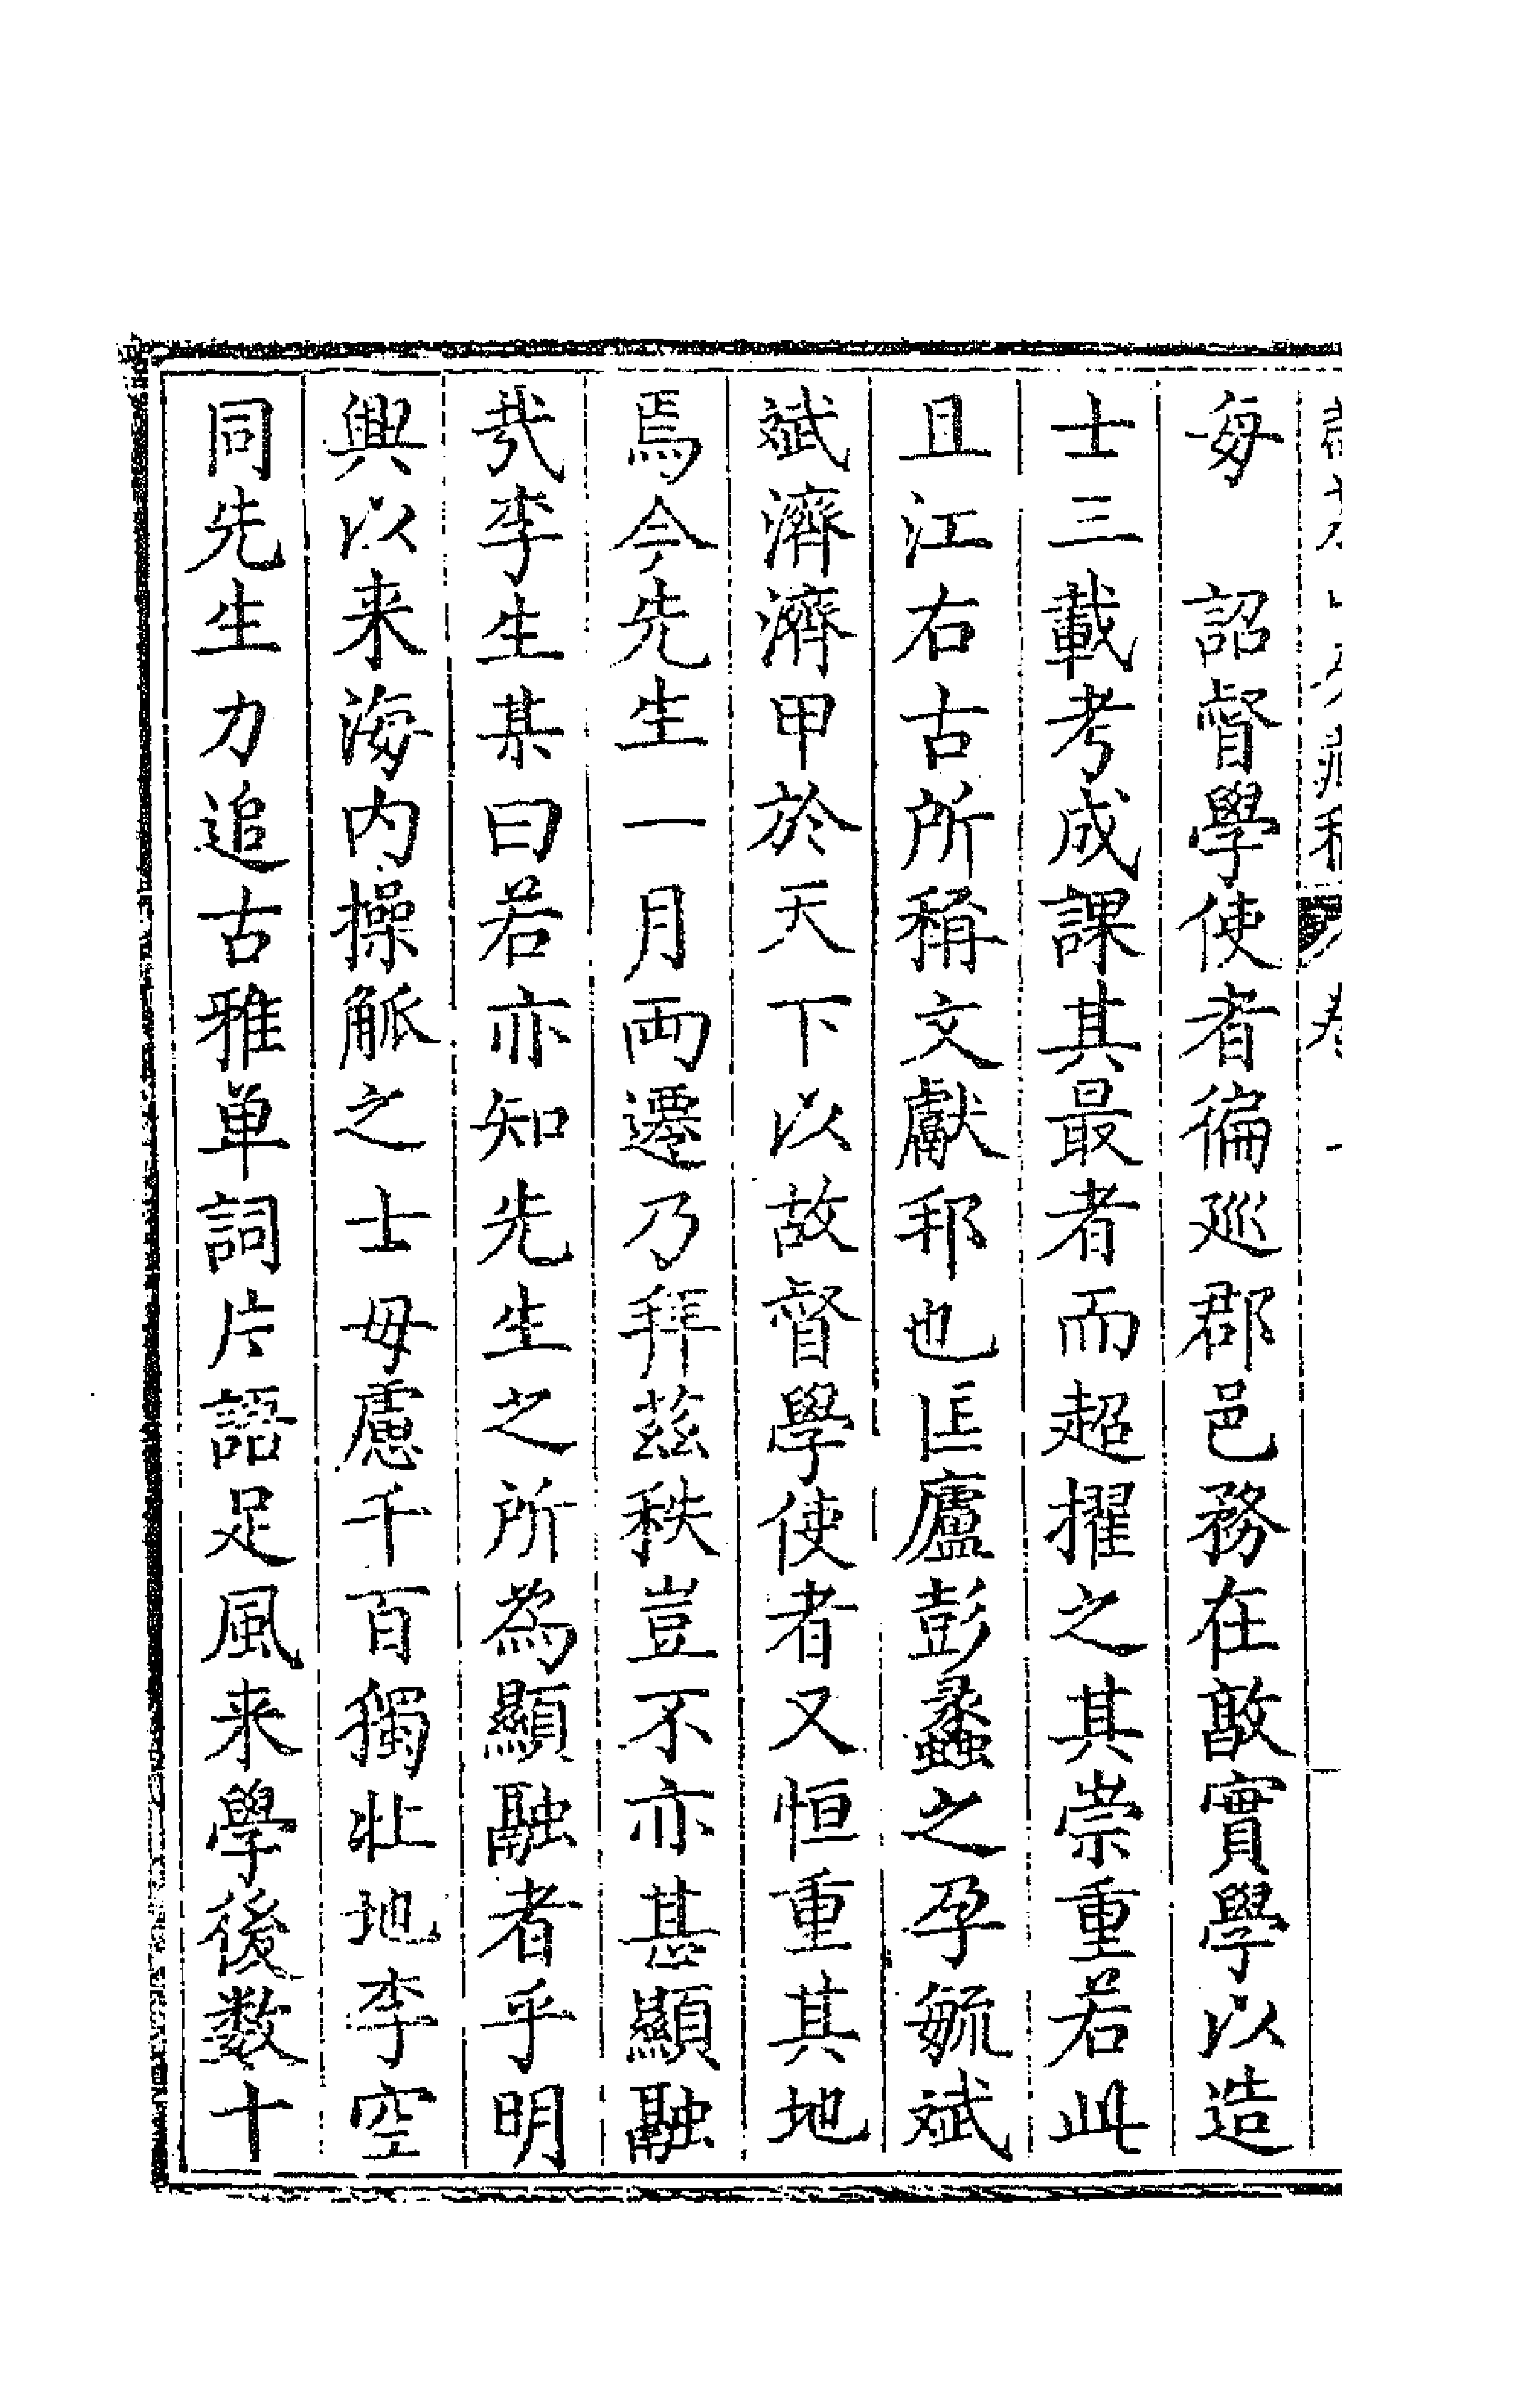 每　詔督學使者徧廵郡邑務在敦實學以造
士三載考成課其最者而超擢之其崇重若此
且江右古所稱文獻邦也匡廬彭蠡之孕毓斌
斌濟濟甲於天下以故督學使者又恒重其地
焉今先生一月両遷乃拜茲秩豈不亦甚顯融
㦲李生某曰若亦知先生之所為顯融者乎明
興以来海内操觚之士毋慮千百獨壮地李空
同先生力追古雅单詞片語足風来學後数十